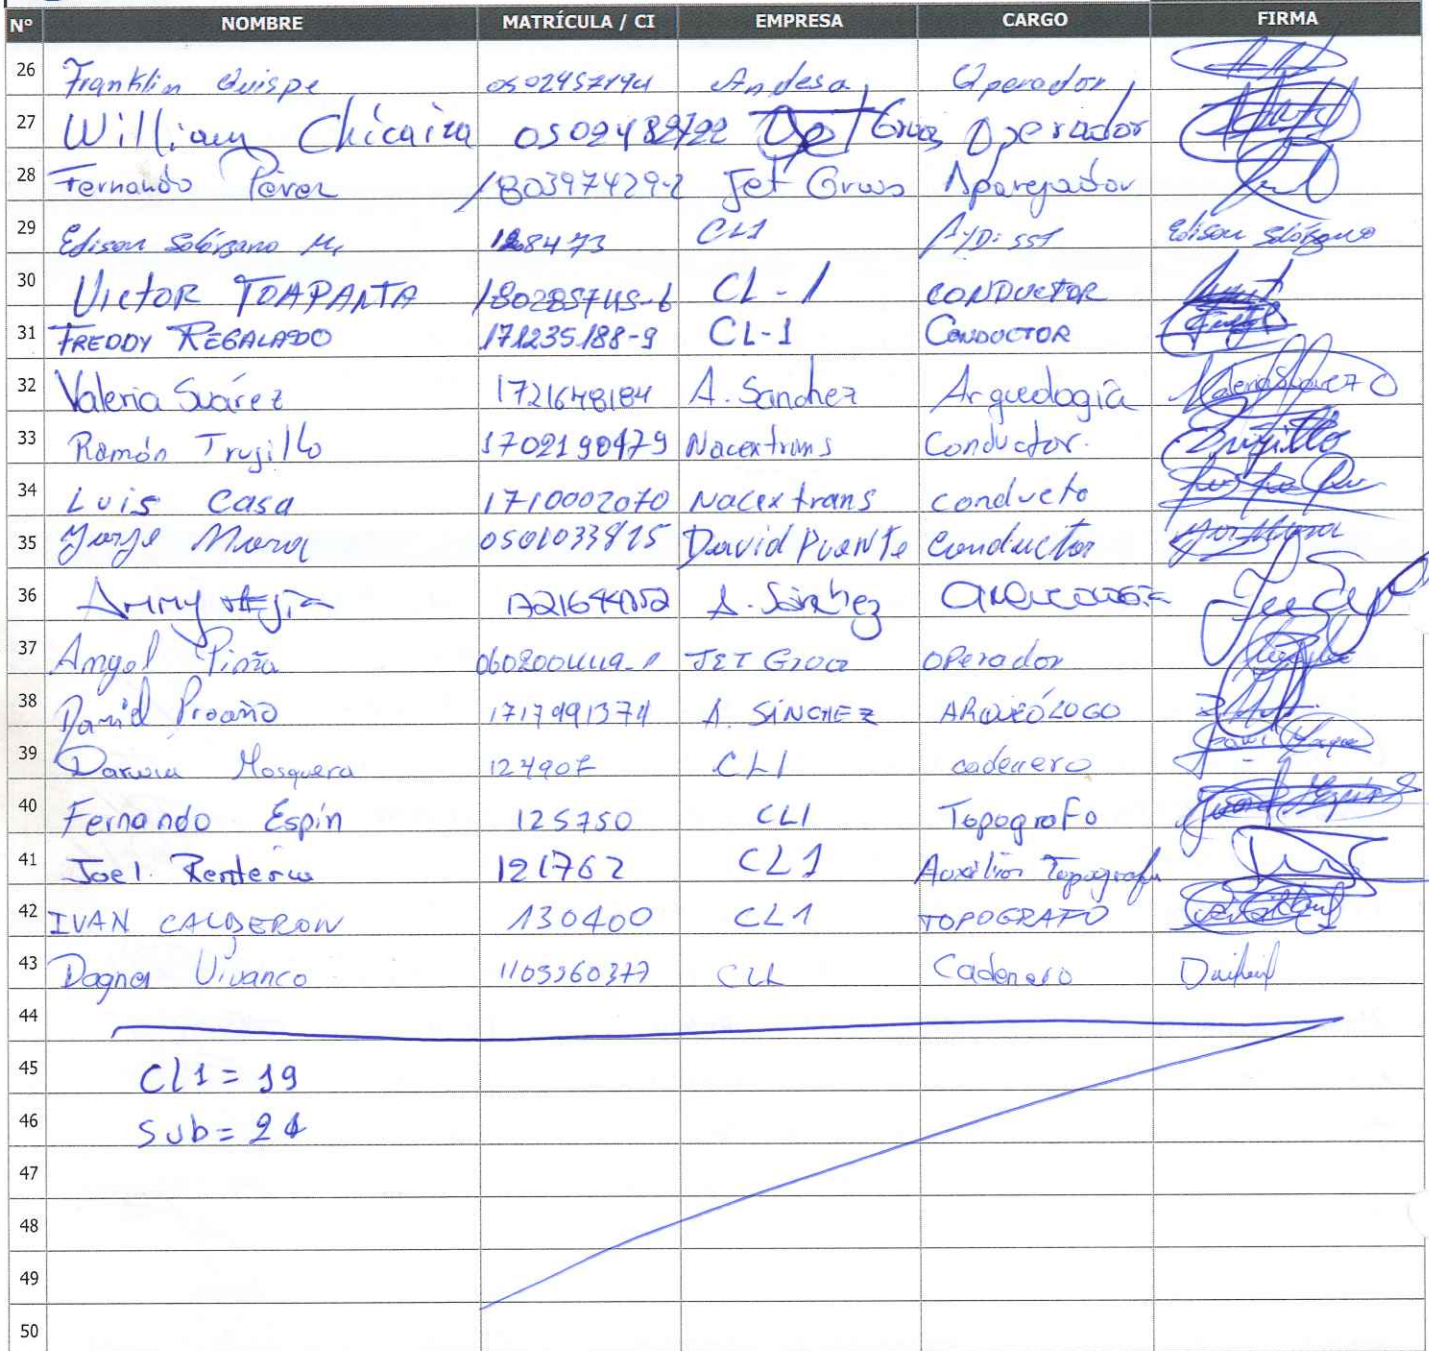 Nº NOMBRE MATRÍCULA / CI EMPRESA CARGO FIRMA
26 Franklin Quispe 0502457194 Andesa Operador
27 William Chicaiza 0502482722 Jet Gruas Operador
28 Fernando Pérez 180397429-2 Jet Gruas Aparejador
29 Edison Solórzano M. 128473 CL1 AyDi SST Edison Solórzano
30 VICTOR TOAPANTA 180285745-6 CL-1 CONDUCTOR
31 FREDDY REGALADO 171235188-9 CL-1 CONDUCTOR
32 Valeria Suárez 1721648184 A. Sánchez Arqueología Valeria Suárez
33 Ramón Trujillo 1702190479 Nacextrans Conductor. Trujillo
34 Luis Casa 1710002070 Nacextrans conducto
35 Jorge Mora 0501033815 David Puente Conductor
36 A. Sánchez
37 Angel JET Grua Operador
38 Daniel Proaño 1717991374 A. SÁNCHEZ ARQUEÓLOGO
39 Darwin Mosquera 124907 CL1 cadenero
40 Fernando Espín 125750 CL1 Topografo
41 Joel. Renteria 121762 CL1 Auxiliar Topografia
42 IVAN CALDERON 130400 CL1 TOPOGRAFO
43 Dagner Vivanco 1105360377 CL1 Cadenero
44
45 Cl1 = 19
46 Sub = 24
47
48
49
50